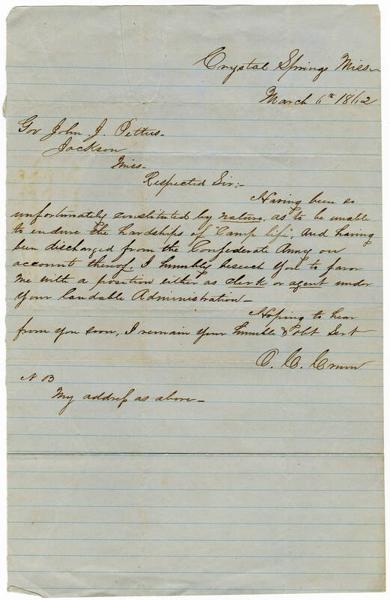 Crystal Springs Miss
March 6th 1862
Gov John J. Pettus.
Jackson
Miss.
Respected Sir:-
Having been so
unfortunately constituted by nature, as to be unable
to endure the Hardships of "Camp life", and having
been discharged from the Confederate Army on
account thereof, I humbly beseech you to favor
me with a position either as clerk or agent under
your laudable Administration-
Hoping to hear
from you soon, I remain your humble & Obt Sert
C. C.
N B
My address as above-